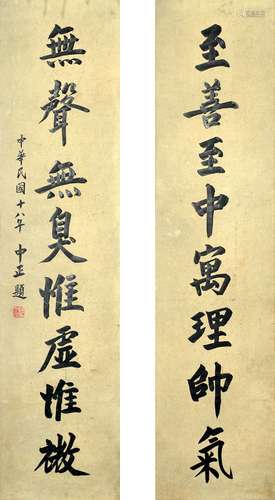 至善至中寓理帥氣
無聲無臭惟虛惟微
中華民國十八年 中正題